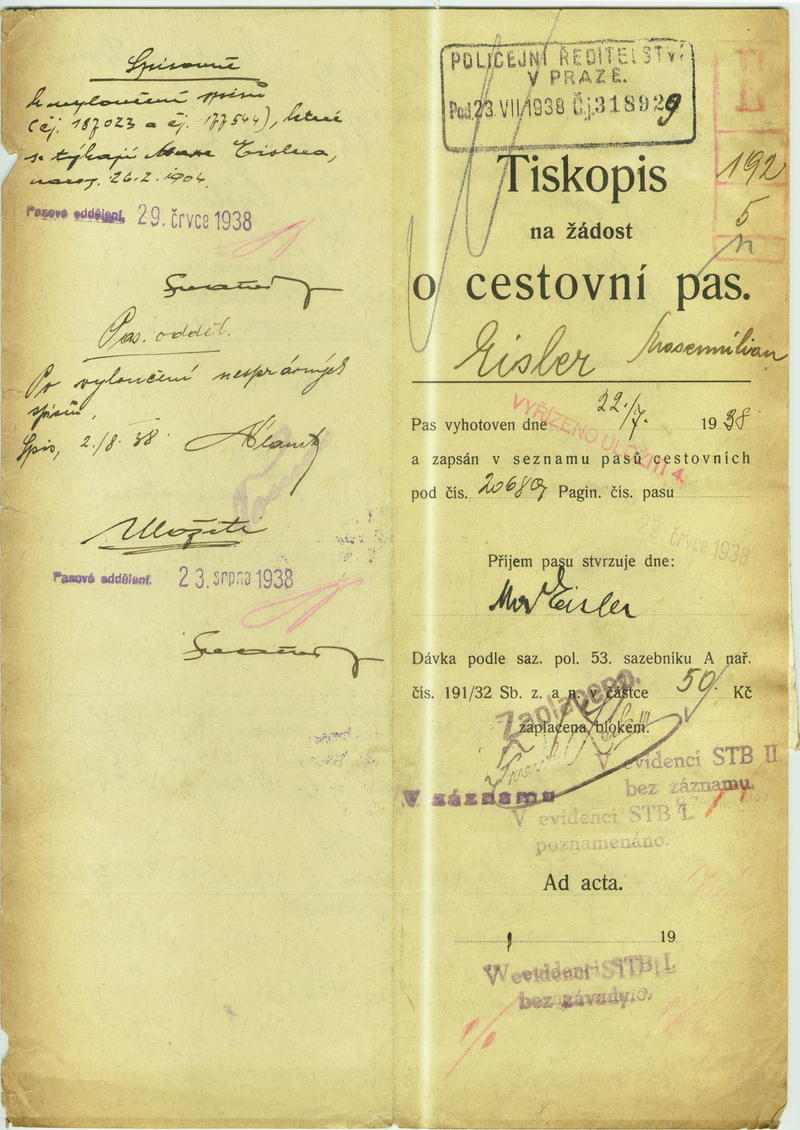 Spisovně
k vyloučení spisů
(čj. 187023 a čj. 177544), které
se týkají Maxe Eislera,
naroz. 26.2.1904.
Pasové oddělení. 29. črvce 1938
Pas. odděl.
Po vyloučení nesprávných
spisů,
Spis, 2./8. 38.
Uložiti
Pasové oddělení. 23. srpna 1938
POLICEJNÍ ŘEDITELSTVÍ
V PRAZE.
Pod. 23. VII. 1938 Čj. 318929
E
192
5
Tiskopis
na žádost
o cestovní pas.
Eisler Maxmilian
Pas vyhotoven dne 22./7. 1938
VYŘÍZENO ULOŽITI
a zapsán v seznamu pasů cestovních
pod čís. 20689 Pagin. čís. pasu
črvce 1938
Příjem pasu stvrzuje dne:
Max Eisler
Dávka podle saz. pol. 53. sazebníku A nař.
čís. 191/32 Sb. z. a n. v částce 50 Kč
Zaplaceno.
zaplacena blokem.
V evidenci STB II.
bez záznamu.
V záznamu
V evidenci STB I.
poznamenáno.
Ad acta.
19
V evidenci STB I.
bez závady.